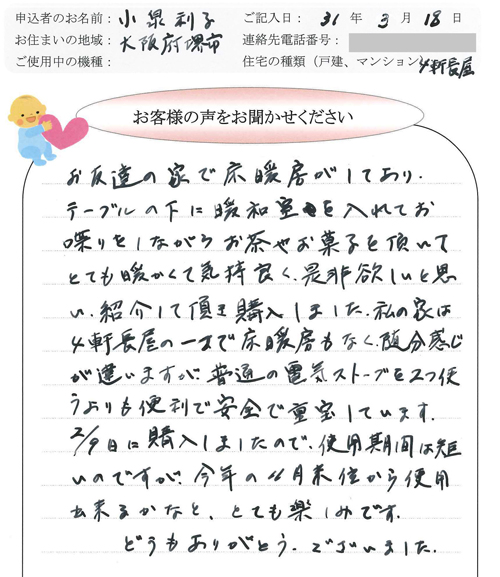 申込者のお名前：小泉利子 ご記入日：31年3月18日
お住まいの地域：大阪府堺市 連絡先電話番号：
ご使用中の機種： 住宅の種類（戸建、マンション 4軒長屋
お客様の声をお聞かせください
お友達の家で床暖房がしてあり、
テーブルの下に暖和室を入れてお
喋りをしながらお茶やお菓子を頂いて
とても暖かくて気持良く、是非欲しいと思
い、紹介して頂き購入しました。私の家は
4軒長屋の一つで床暖房もなく、随分感じ
が違いますが、普通の電気ストーブを2つ使
うよりも便利で安全で重宝しています。
2/9日に購入しましたので、使用期間は短
いのですが、今年の11月末位から使用
出来るかなと、とても楽しみです。
どうもありがとう、ございました。